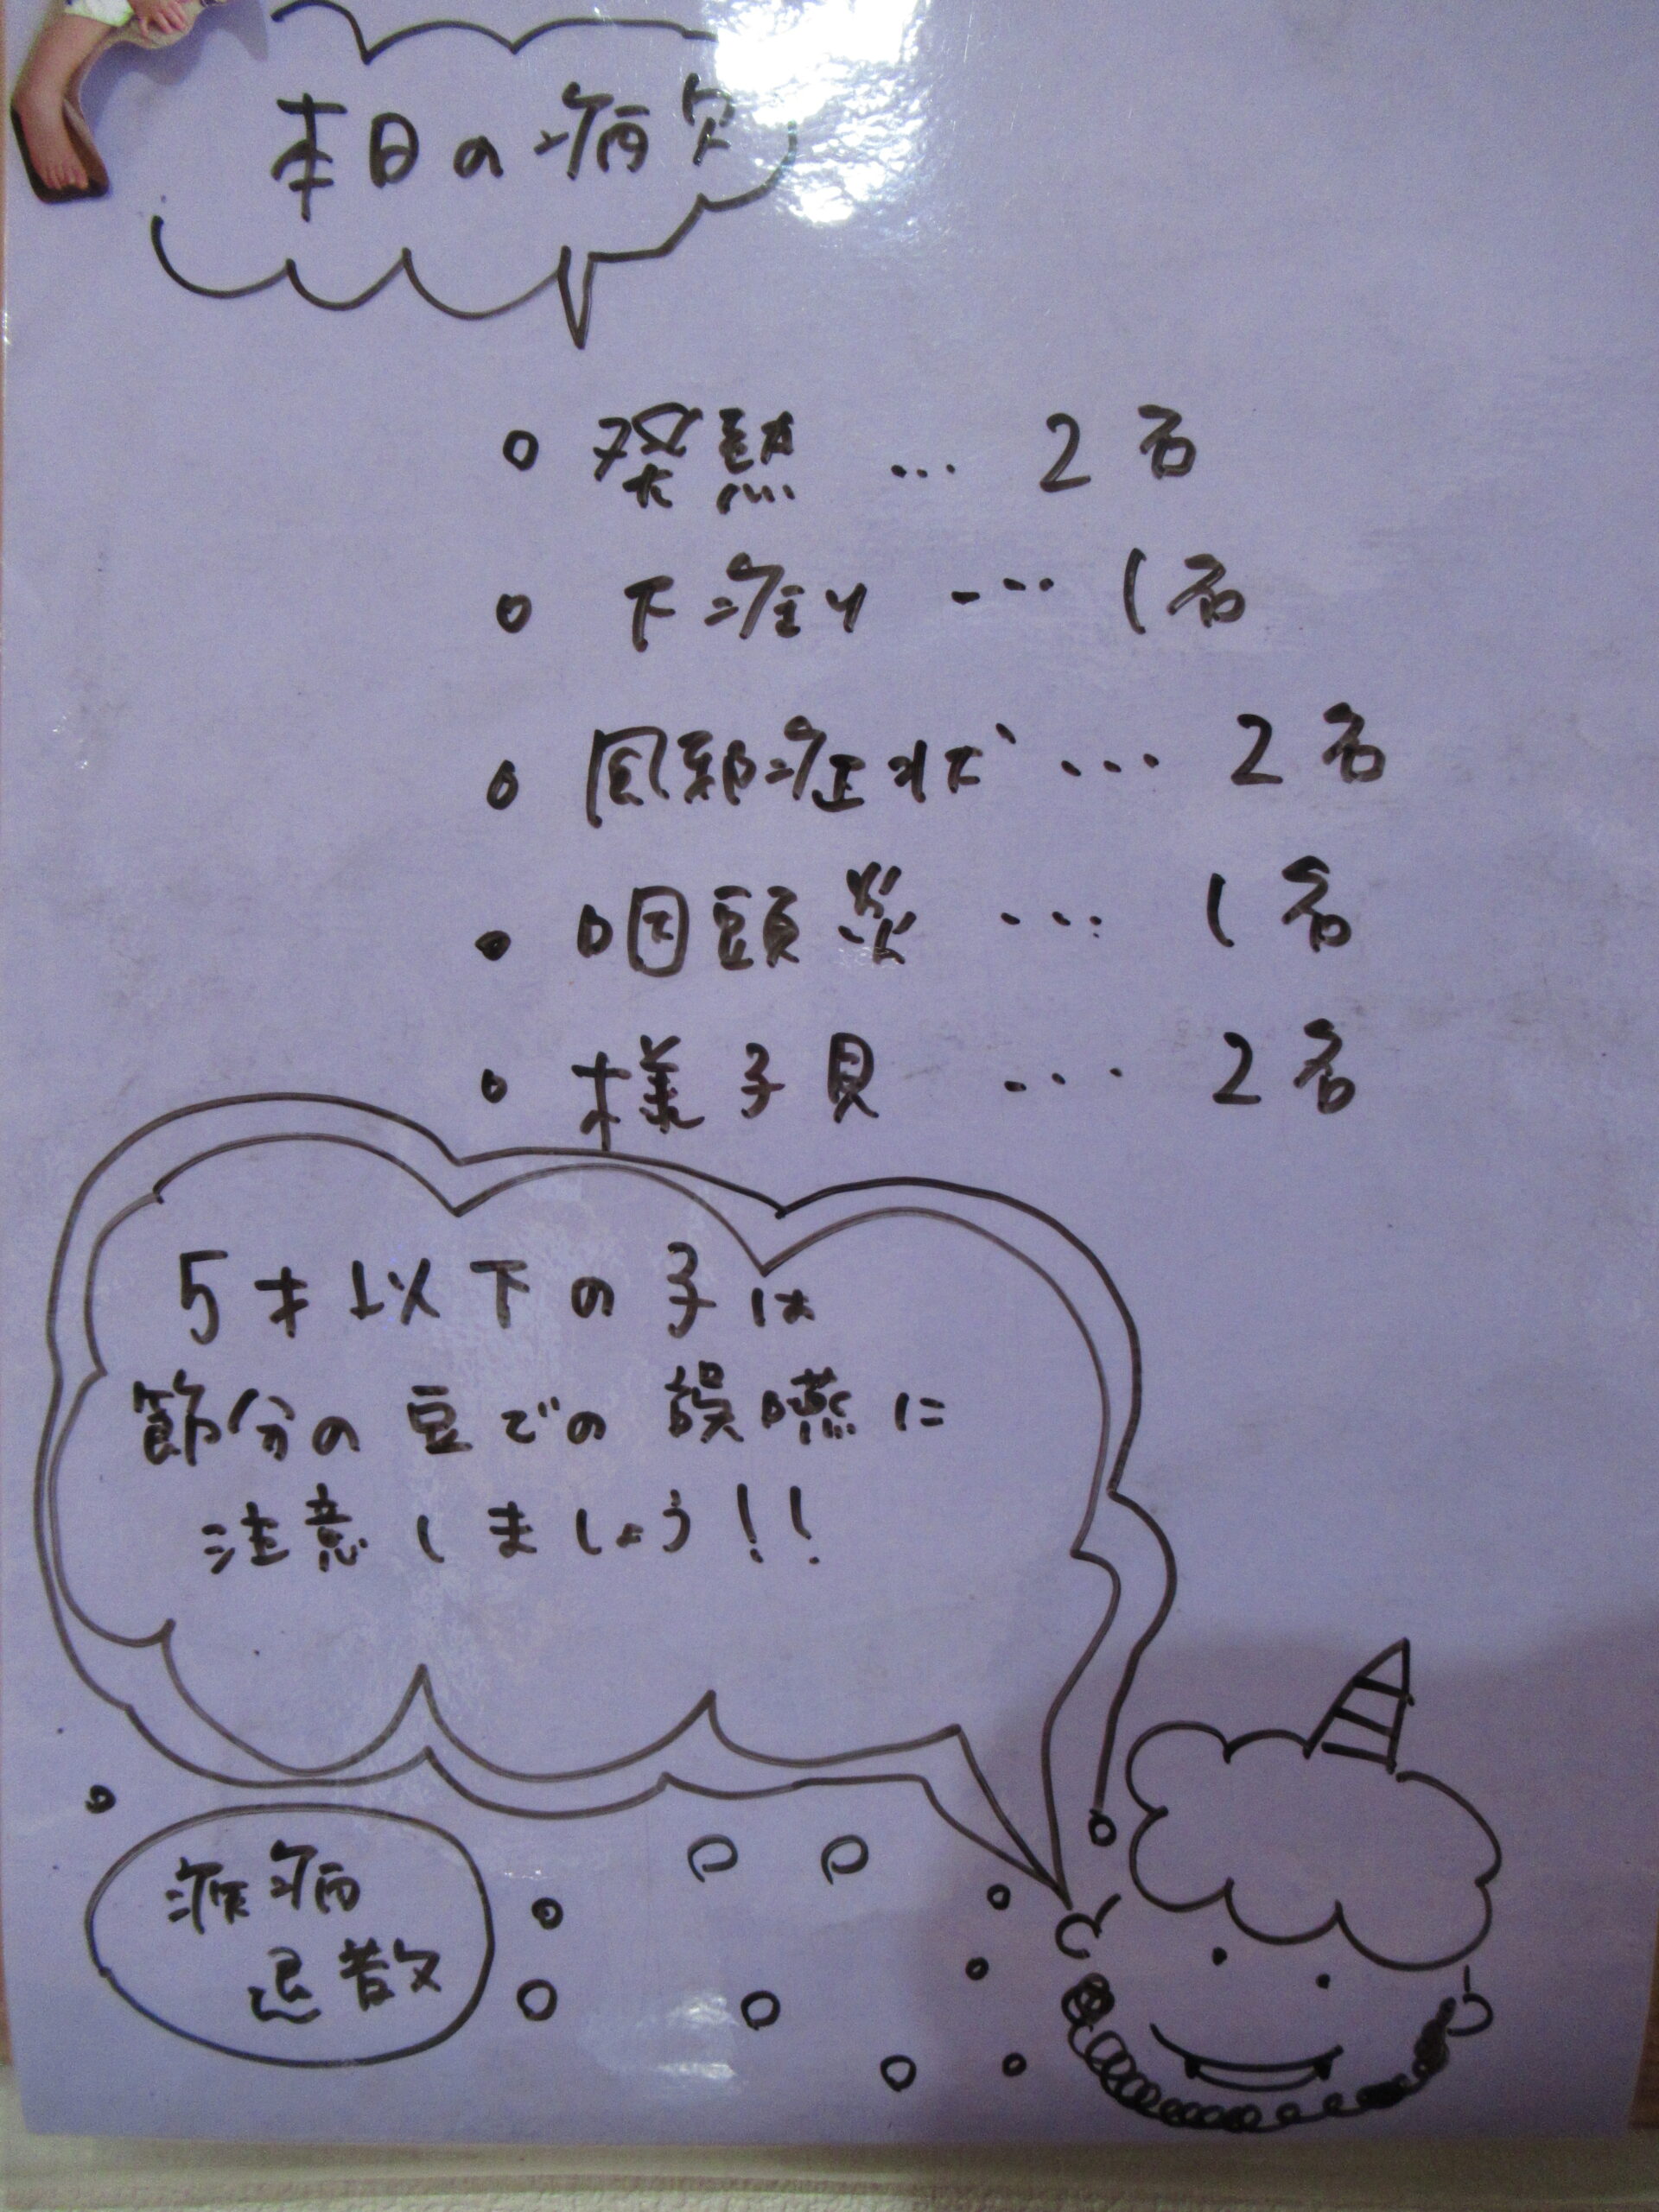 本日の病欠
○ 発熱 … 2名
○ 下痢り … 1名
○ 風邪症状 … 2名
○ 咽頭炎 … 1名
○ 様子見 … 2名
5才以下の子は
節分の豆での誤嚥に
注意しましょう!!
疾病
退散